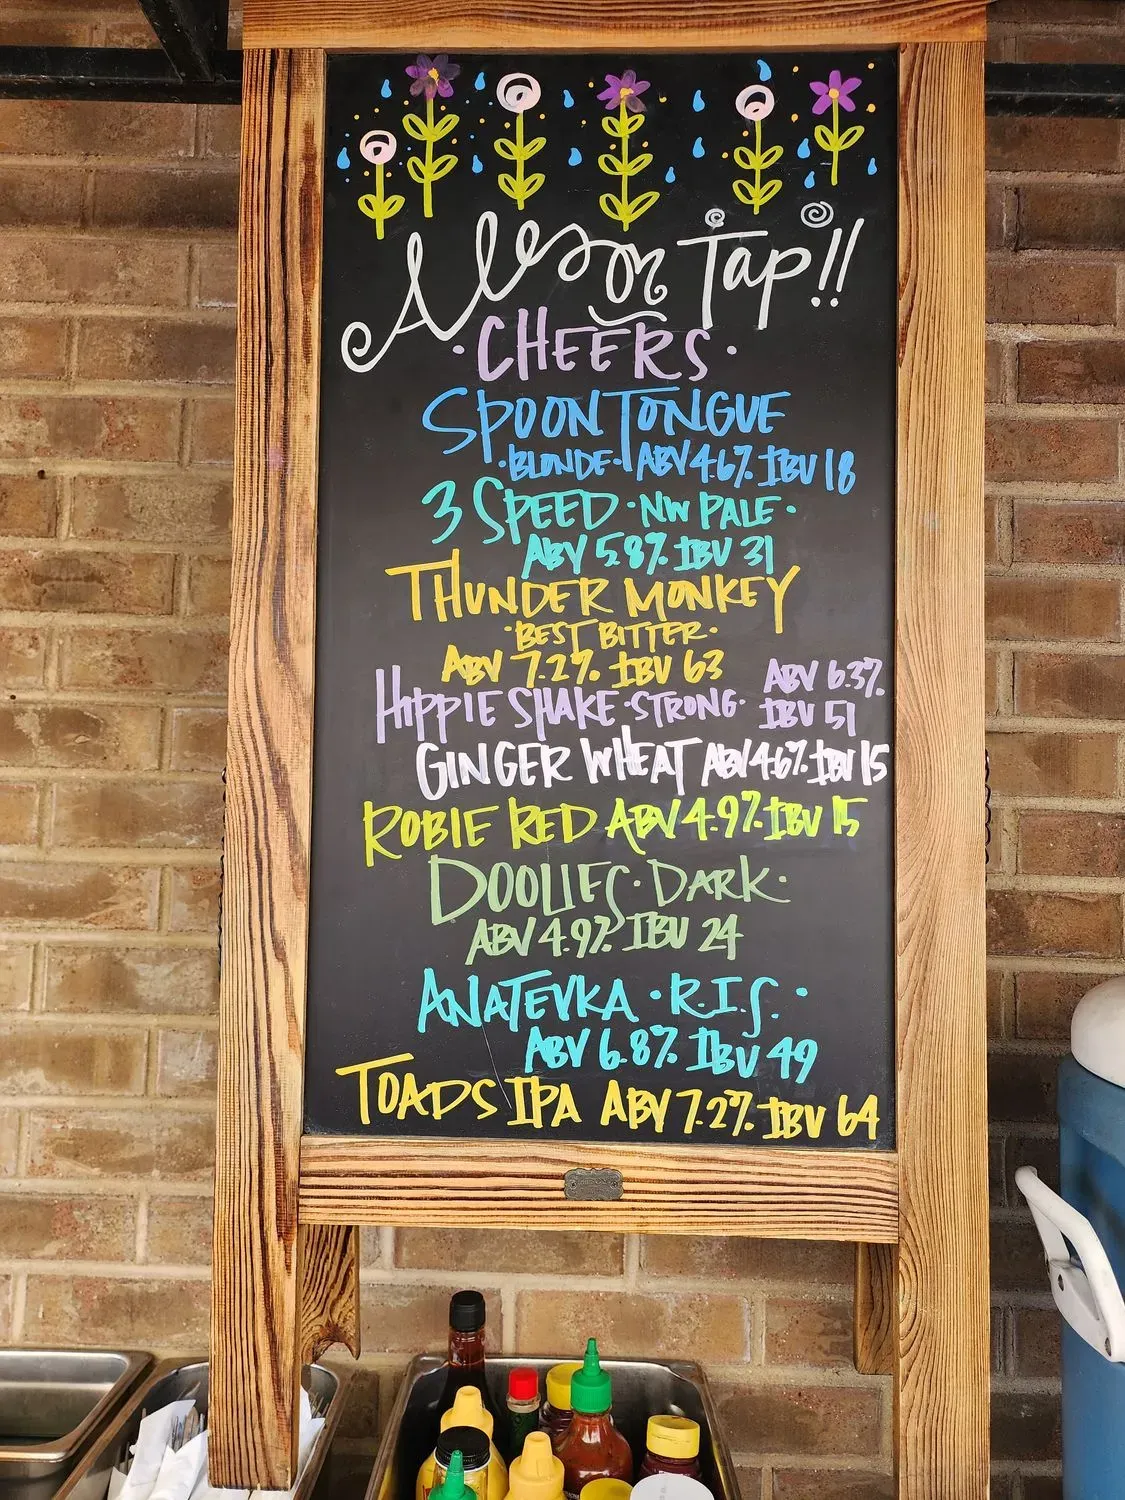 Ales on Tap!!
· CHEERS ·
SPOON TONGUE
· BLONDE · ABV 4.6% IBU 18
3 SPEED · NW PALE ·
ABV 5.8% IBU 31
THUNDER MONKEY
· BEST BITTER ·
ABV 7.2% IBU 63
HIPPIE SHAKE · STRONG · ABV 6.3%
IBU 51
GINGER WHEAT ABV 4.6% IBU 15
ROBIE RED ABV 4.9% IBU 15
DOOLIES · DARK ·
ABV 4.9% IBU 24
ANATEVKA · R.I.S. ·
ABV 6.8% IBU 49
TOADS IPA ABV 7.2% IBU 64